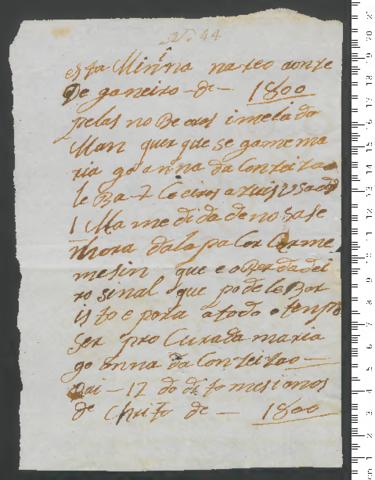 No 44
esta Minina naseo aonze
De ganeiro - de - 1800
pelas no Be oras i meia da
Man quer que se game ma
ria goanna da Conseisao
leBa
1 Ma me di da de nosa se
nhora da lapa Cor Carme
mesin que e o Berda dei
ro sinal que po de le Bar
isto e para a todo o tenpo
ser pro Curada maria
goanna da Conseisao -
oai - 12 do di to mes i anos
de Christo de - 1800